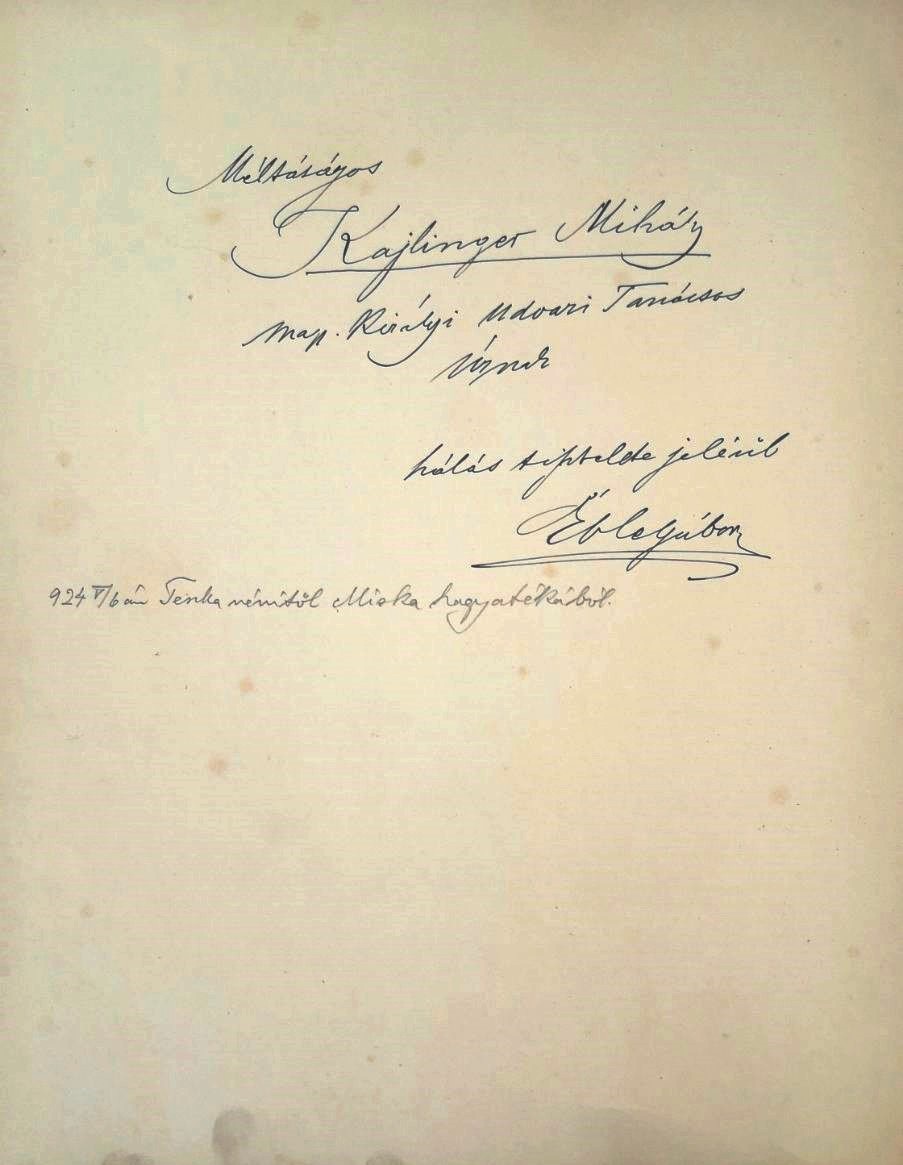 Méltóságos
Kajlinger Mihály
mag. Királyi Udvari Tanácsos
Úrnak
hálás tisztelete jeléűl
Éble Gábor
924 V/6 án Tenka nénitől Miska hagyatékából.